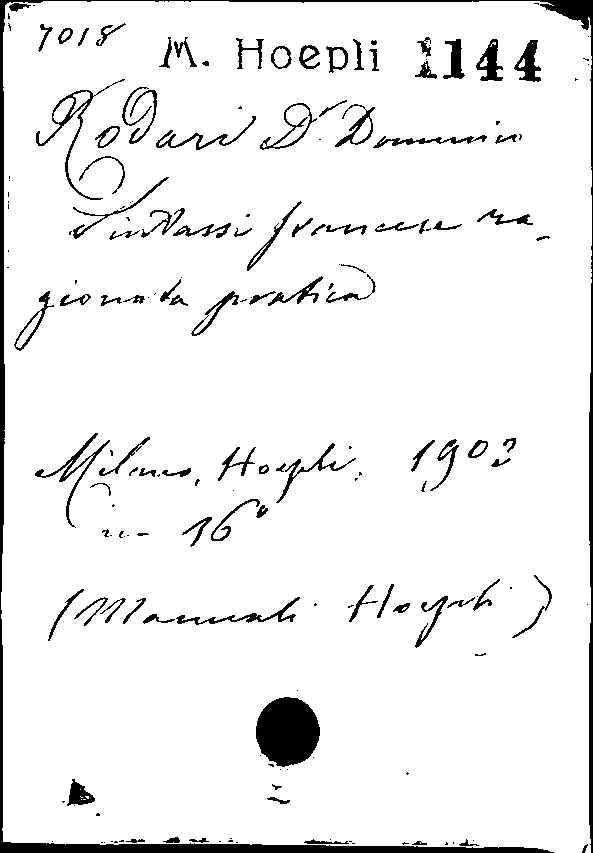 7018 M. Hoepli 1144
Rodari Dr Domenico
Sintassi francese ra-
gionata pratica
Milano, Hoepli. 1903
in- 16°
(Manuali Hoepli)